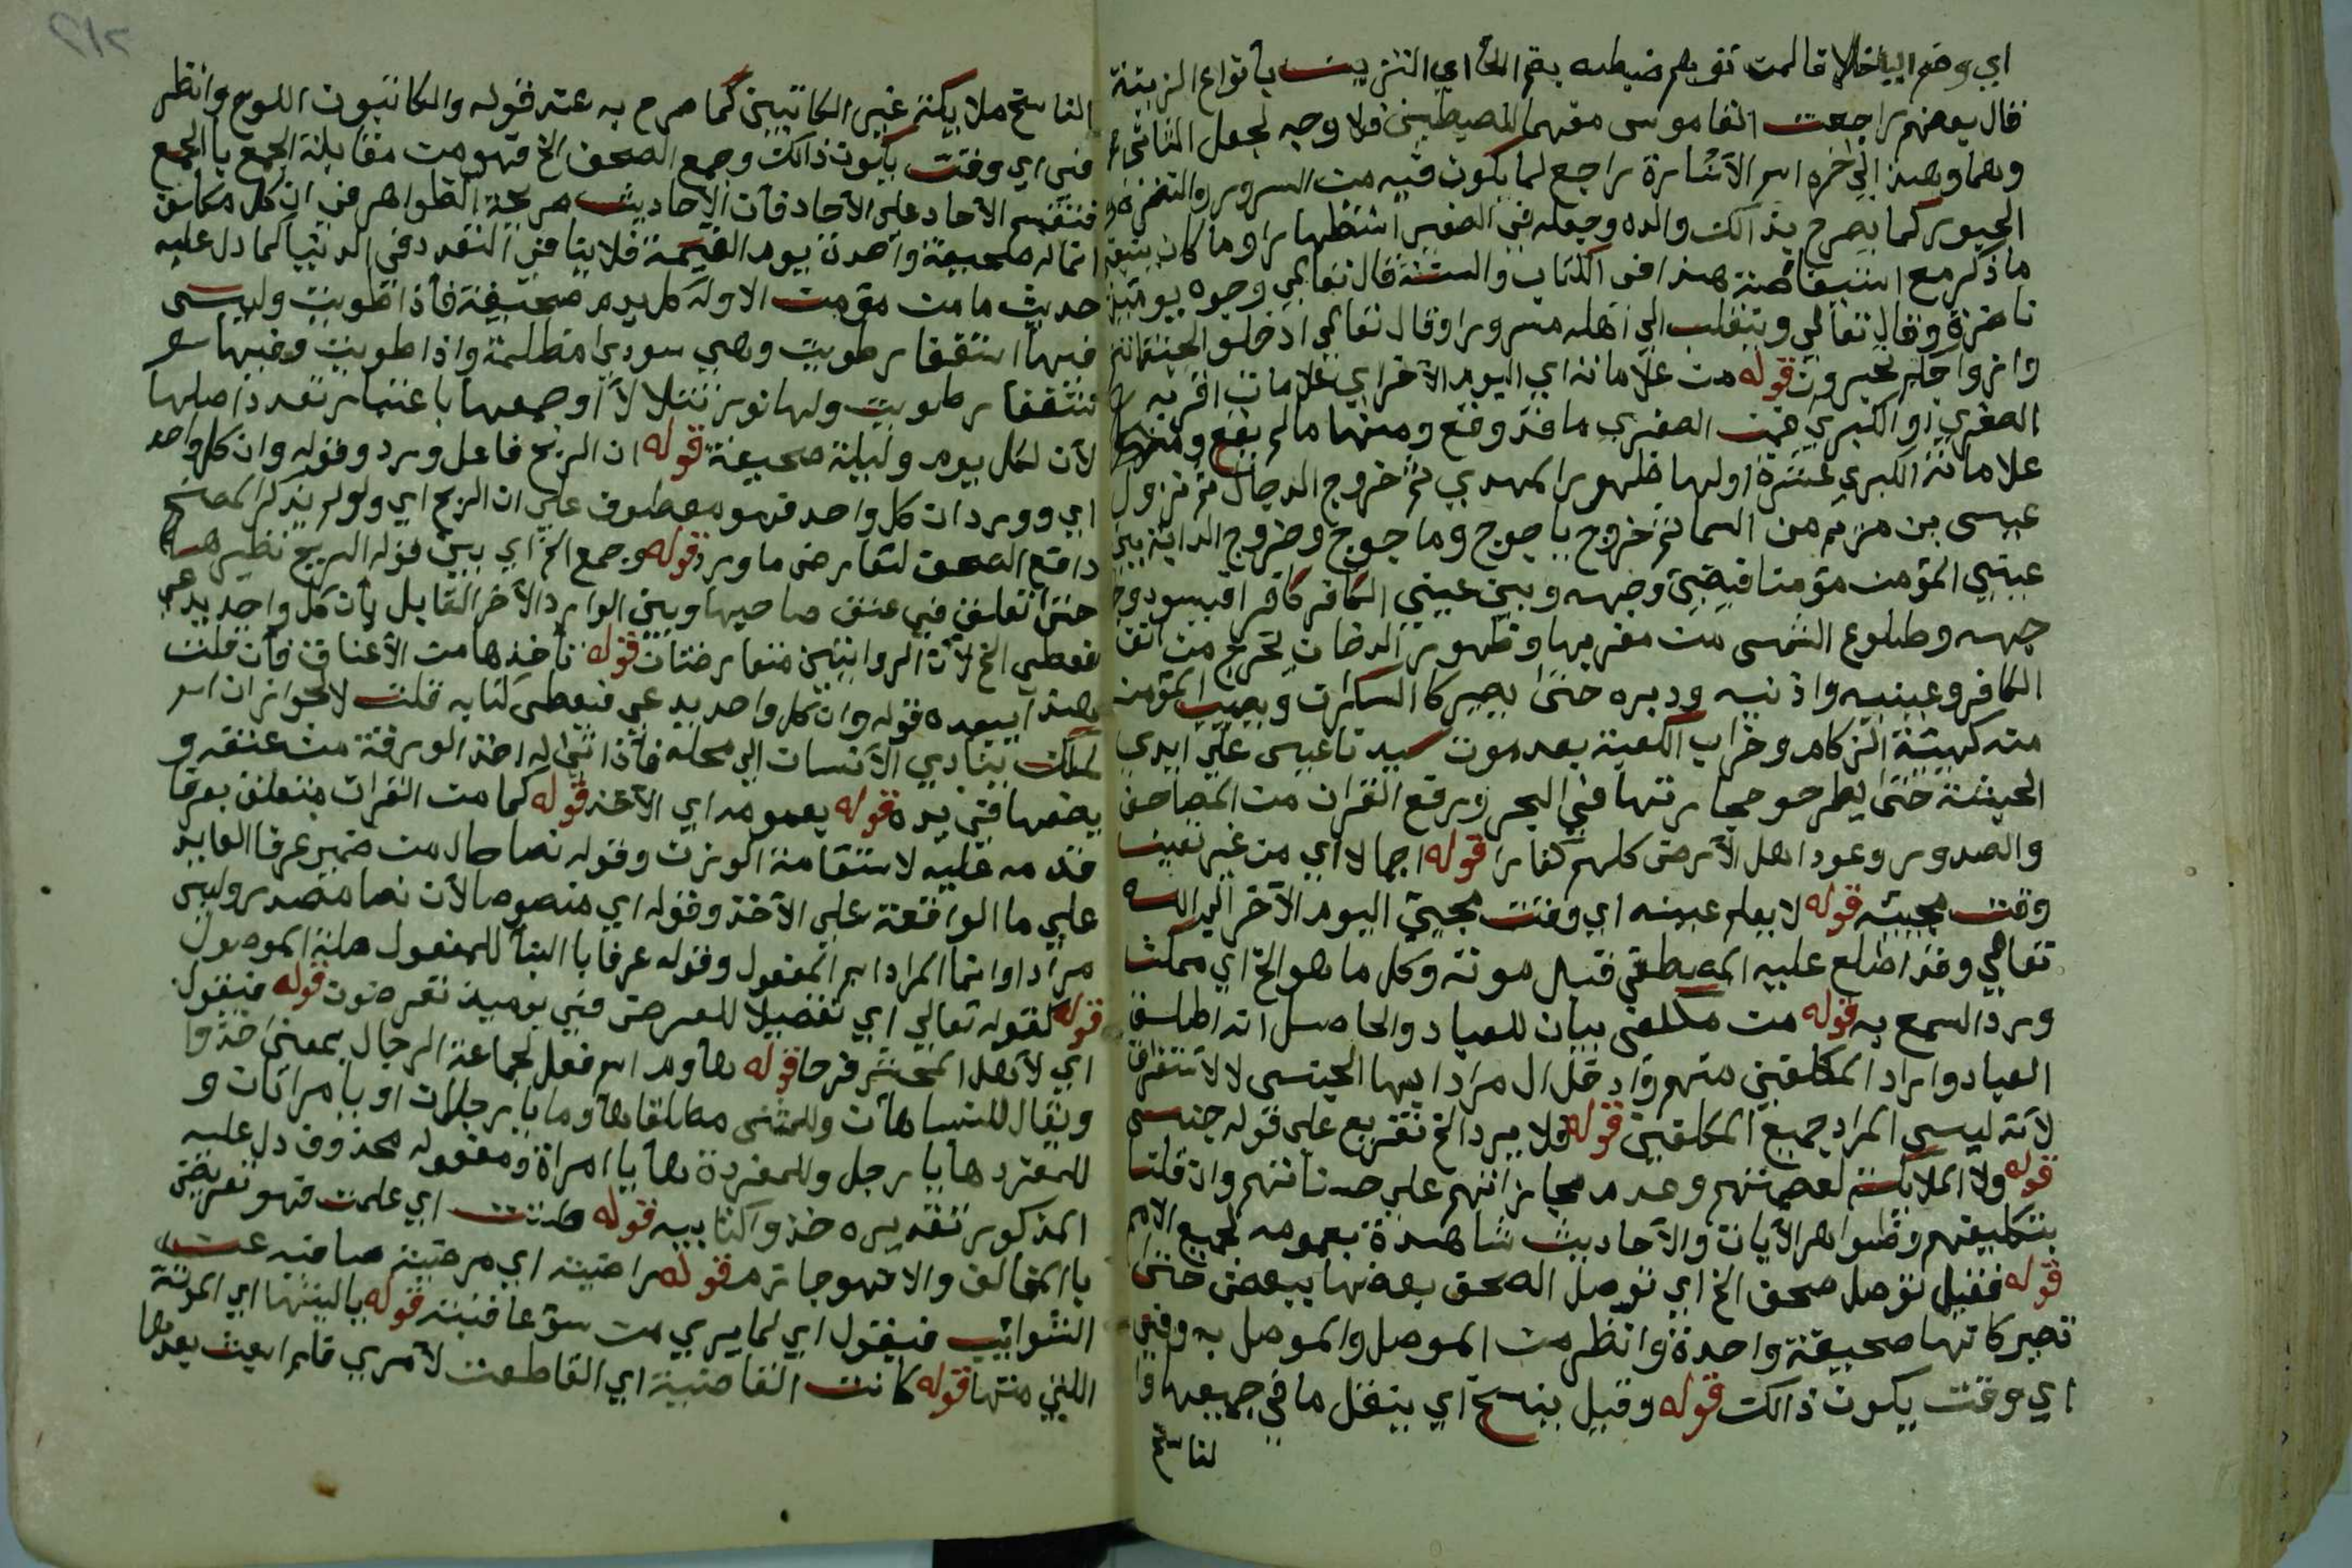 اي وضم اليا خلافا لمن توهم ضبطه بفتح الحا اي التزيين بأنواع الزينة
قال بعضهم راجعت القاموس مفهما للضبطين فلا وجه لجعل الثاني
وهما وهذا إلي اخره اسم الأشارة راجع لما يكون فيه من السرور والنضرة
الحبور كما يصرح بذالك والده وجعله في الصغير استظهارا وما كان ينبغي
ما ذكر مع استفاضة هذا في الكتاب والسنة قال تعالي وجوه يومئذ
ناضرة وقال تعالي وينقلب الي اهله مسرورا وقال تعالي ادخلوا الجنة انتم
وازواجكم تحبرون قوله من علاماته اي اليوم الأخر اي علامات قربه
الصغري او الكبري فمن الصغري ما قد وقع ومنها ما لم يقع
علاماته الكبري عشرة اولها ظهور المهدي ثم خروج الدجال ثم نزول
عيسى بن مريم من السما ثم خروج ياجوج وماجوج وخروج الدابة بين
عيني المؤمن مؤمنا فيضيئ وجهه وبين عيني الكافر كافرا فيسود وجه
جهه وطلوع الشمس من مغربها وظهور الدخان يخرج من انف
الكافر وعينيه واذنيه ودبره حتى يصير كا السكران ويصيب المؤمن
منه كهيئة الزكام وخراب الكعبة بعد موت سيدنا عيسى علي ايدي
الحبشة حتى يطرحو حجارتها في البحر ورفع القران من المصاحف
والصدور وعود اهل الأرض كلهم كفارا قوله اجمالا اي من غير تعيين
وقت مجيئه قوله لا يعلم عينه اي وقت مجيئ اليوم الأخر الي الله
تعالي وقد اطلع عليه المصطفي قبل موته وكل ما هو الخ اي ممكن
ورد السمع به قوله من مكلفي بيان للعباد والحاصل انه اطلق
العباد واراد المكلفين منهم واد خل ال مرادا بها الجنس لا لأستغراق
لأنه ليس المراد جميع المكلفين قوله فلا يرد الخ تفريع علي قوله جنس
قوله ولا الملايكة لعصمتهم وعدم مجازاتهم علي حسناتهم وان قلنا
بتكليفهم وظواهر الأيات والأحاديث شاهدة بعمومه لجميع الامم
قوله فقيل توصل صحف الخ اي توصل الصحف بعضها ببعض حتى
تصير كانها صحيفة واحدة وانظر من الموصل والموصل به وفي
اي وقت يكون ذالك قوله وقيل ينسخ اي ينقل ما في جميعها وا
لناسخ
الناسخ ملايكة غير الكاتبين كما صرح به عند قوله والكاتبون اللوح وانظر
في اي وقت يكون ذالك وجمع الصحف الخ فهو من مقابلة الجمع با الجمع
فتقسم الأحاد علي الأحاد فأن الأحاديث صريحة الظواهر في ان كل مكلف
انما له صحيفة واحدة يوم القيمة فلا ينافي التعدد في الدنيا كما دل عليه
حديث ما من مؤمن الا وله كل يوم صحيفة فأذا طويت وليس
فيها استغفار طويت وهي سودي مظلمة واذا طويت وفيها س
تغفار طويت ولها نور يتلألأ او جمعها باعتبار تعدد اصلها
لأن لكل يوم وليلة صحيفة قوله ان الريح فاعل ورد وقوله وان كل واحد
اي وورد ان كل واحد فهو معطوف علي ان الريح اي ولو لم يذكر المصنح
دافع الصحف لتعارض ما ورد قوله وجمع الخ اي بين قوله الريح تطيرها
حتى تعلق في عنق صاحبها وبين الوارد الأخر القايل بأن كل واحد يدعي
فيعطي الخ لأن الروايتين متعارضتان قوله تأخذها من الأعناق فأن قلت
هذا يبعده قوله وان كل واحد يدعي فيعطي كتابه قلت لا لجواز ان ا
لملك ينادي الأنسان الي محله فأذا اتي له اخذ الورقة من عنقه و
يضعها في يده قوله بعمومه اي الأخذ قوله كما من القران متعلق بعرفا
قدمه عليه لاستقامة الوزن وقوله نصا حال من ضمير عرفا العايد
علي ما الواقعة علي الأخذ وقوله اي منصوصا لأن نصا مصدر وليس
مرادا وانما المراد اسم المفعول وقوله عرفا با البنأ للمفعول صلة الموصول
قوله كقوله تعالي اي تفصيلا للعرض في يوميذ تعرضون قوله فيقول
اي لأهل المحشر فرحا قوله هاوم اسم فعل لجماعة الرجال بمعنى خذوا
ويقال للنسا هأن وللمثنى مطلقا هأوما يا رجلان او يا مراتان و
للمفرد هأ يا رجل وللمفردة هأ يا امراة ومفعوله محذوف دل عليه
المذكور تقديره خذوا كتابيه قوله ظننت اي علمت فهو تعريض
با المخالف والا فهو جازم قوله راضية اي مرضية صافية عن
الشوايب فيقول اي لما يري من سؤ عاقبته قوله يا ليتها اي الموتة
اللتي متها قوله كانت القاضية اي القاطعت لأمري فلم ابعث بعدها